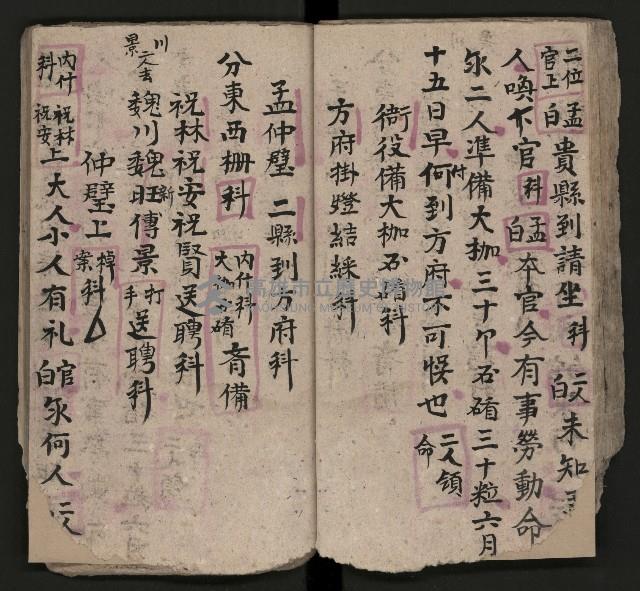 二位官上 孟白 貴縣到請坐科 二人白 未知
人喚卞官科 孟白 夲官今有事勞動命
尔二人準備大枷三十卬石硝三十粒六月
十五日早付何到方府不可悮也 二人領命
衙役備大枷石硝科
方府掛燈結綵科
孟仲璧 二縣到方府科
分東西柵科 內什科大枷硝 育備
祝林祝安祝賢送聘科
川景 元去 魏川魏旺新傅景 打手 送聘科
仲璧上 棹案科
內什科 祝林祝安 上大人小人有礼 官白 尔何人 二人
高雄市立歷史博物館
KAOHSIUNG MUSEUM OF HISTORY